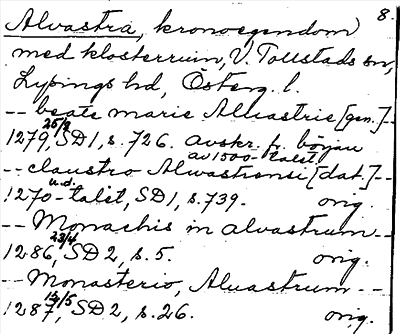 8.
Alvastra, kronoegendom
med klosterruin, V. Tollstads sn,
Lysings hd, Österg. l.
-- beate marie Aluastrie [gen.] --
1279 25/3, SD 1, s. 726. avskr. fr. början
av 1500-talet.
-- claustro Alwastrensi [dat.] --
1270-talet u.d., SD 1, s. 739. orig.
-- Monachis in alvastrum --
1286 23/4, SD 2, s. 5. orig.
-- Monasterio, Aluastrum --
1287 14/5, SD 2, s. 26. orig.